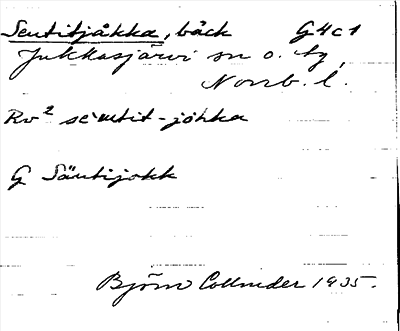 Sentitjåkka, bäck G4c1
Jukkasjärvi sn o. tg,
Norrb. l.
Rv² sèntit-jåhka
G Säntijokk
Björn Collinder 1935.